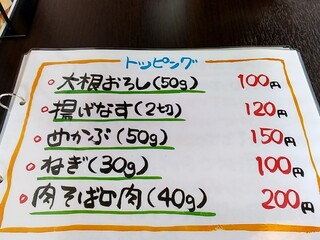 トッピング
大根おろし(50g) 100円
揚げなす(2切) 120円
めかぶ(50g) 150円
ねぎ(30g) 100円
肉そばの肉(40g) 200円